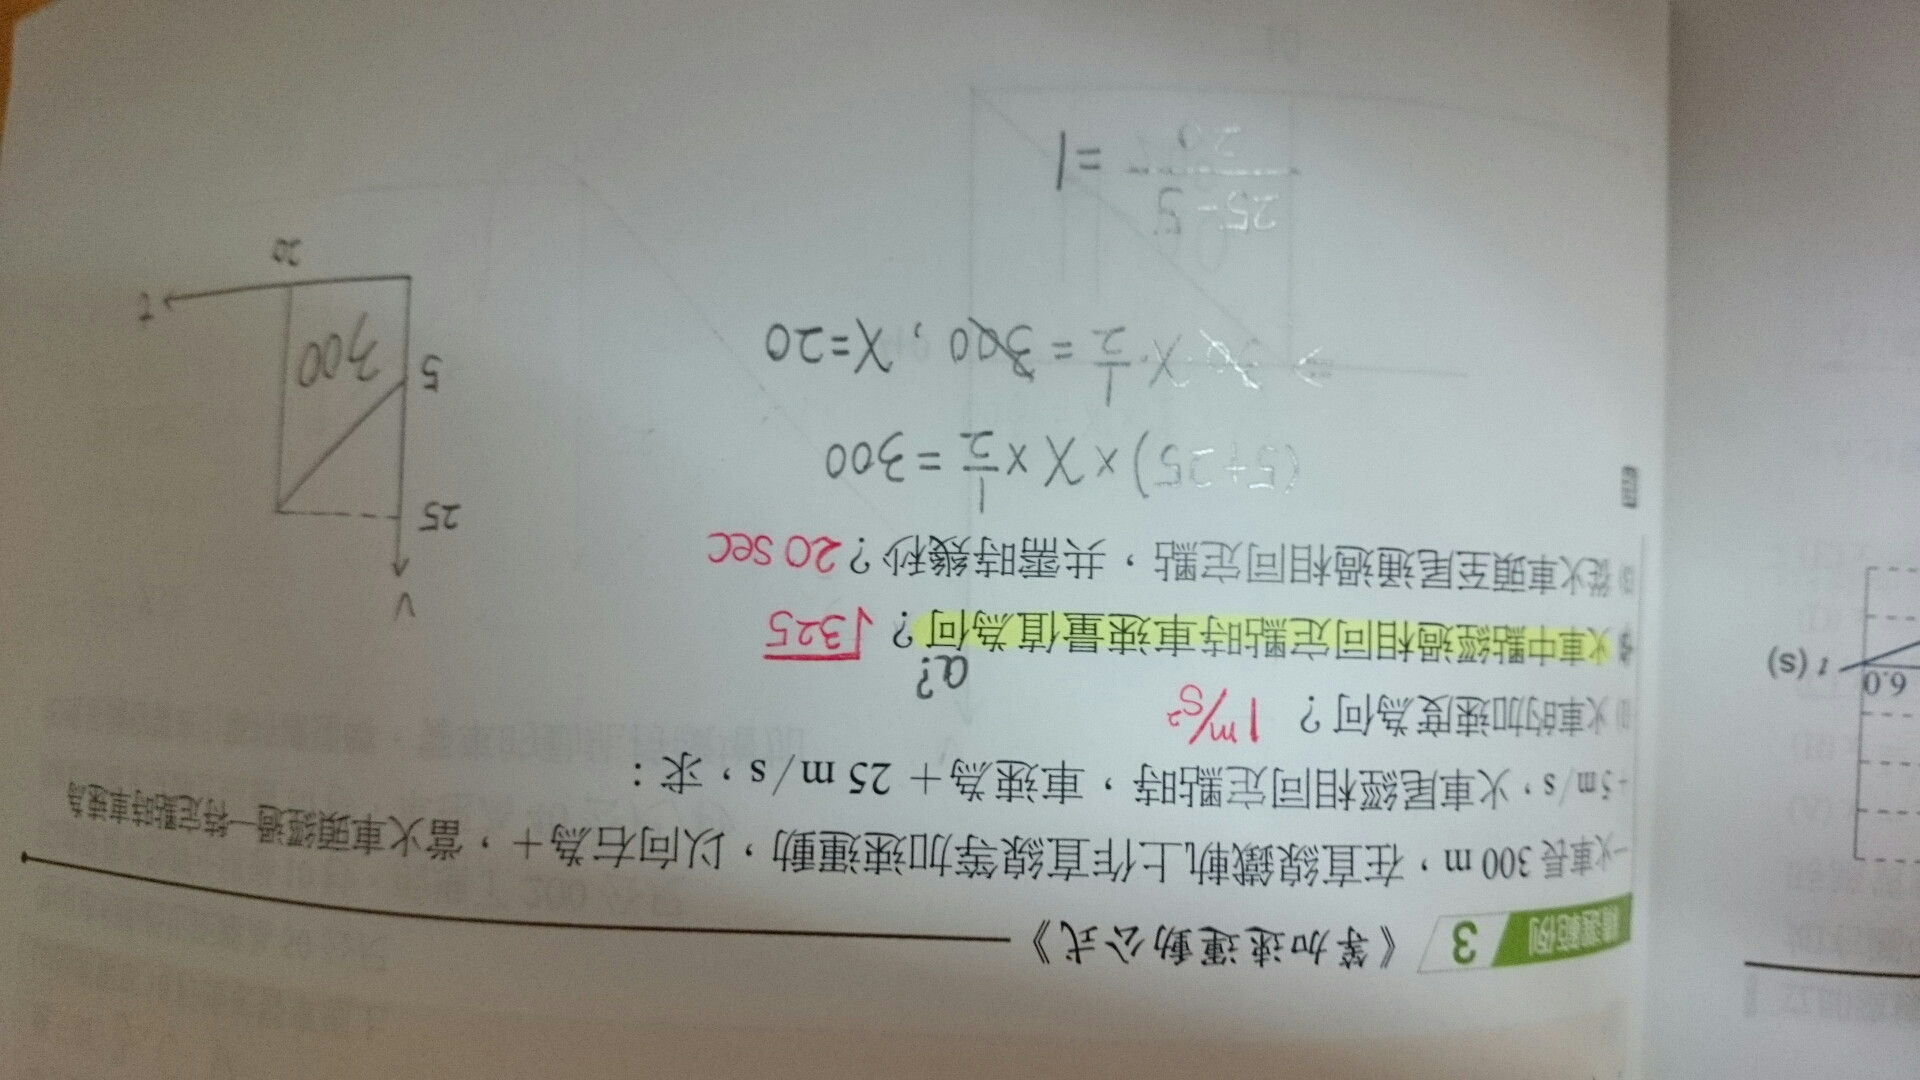 精選範例 3 《等加速運動公式》
一火車長 300 m，在直線鐵軌上作直線等加速運動，以向右為＋，當火車頭經過一特定點時車速為
+5 m/s，火車尾經相同定點時，車速為 + 25 m/s，求：
(1) 火車的加速度為何？ 1 m/s²
a?
火車中點經過相同定點時車速量值為何？ √325
(3) 從火車頭至尾通過相同定點，共需時幾秒？ 20 sec
(5+25)×X×1/2=300
⇒ 30·X·1/2=300，X=20
25-5/20=1
V
25
5
300
20
t
6.0
t (s)